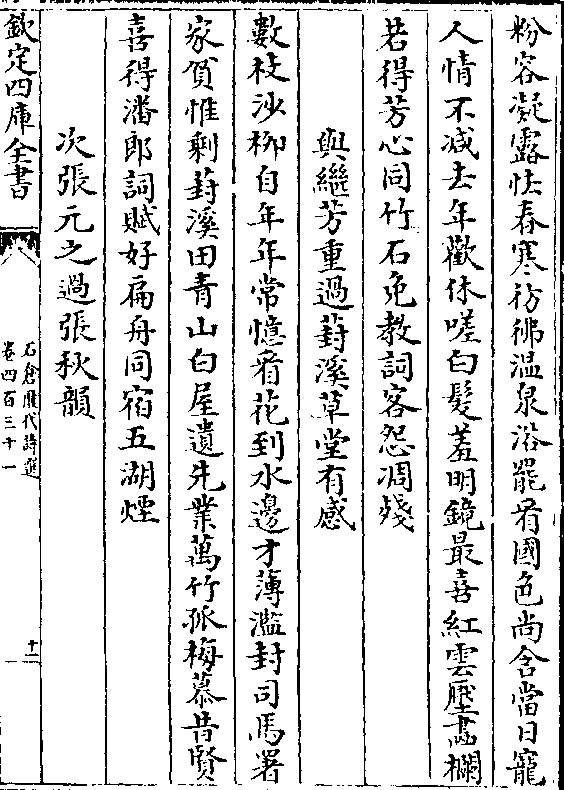 粉容凝露怯春寒彷彿温泉浴罷看國色尚含當日寵
人情不减去年歡休嗟白髮羞明鏡最喜紅雲壓畫欄
若得芳心同竹石免教詞客怨凋殘
與繼芳重過葑溪草堂有感
數枝沙柳自年年常憶看花到水邊才薄濫封司馬署
家貧惟剩葑溪田青山白屋遺先業萬竹孤梅慕昔賢
喜得潘郎詞賦好扁舟同宿五湖煙
次張元之過張秋韻
欽定四庫全書
石倉歷代詩選
卷四百三十一
十一